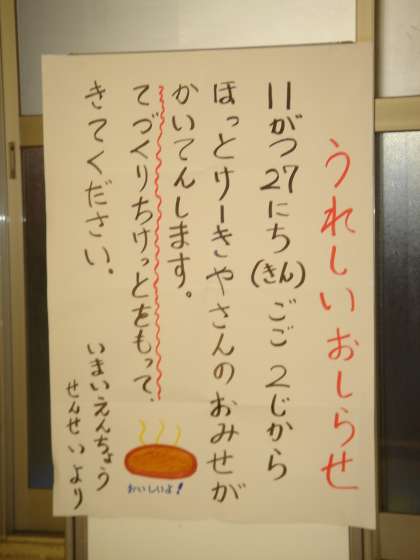 うれしいおしらせ
11がつ27にち(きん)ごご2じから
ほっとけーきやさんのおみせが
かいてんします。
てづくりちけっとをもって、
きてください。
おいしいよ!
いまいえんちょう
せんせいより